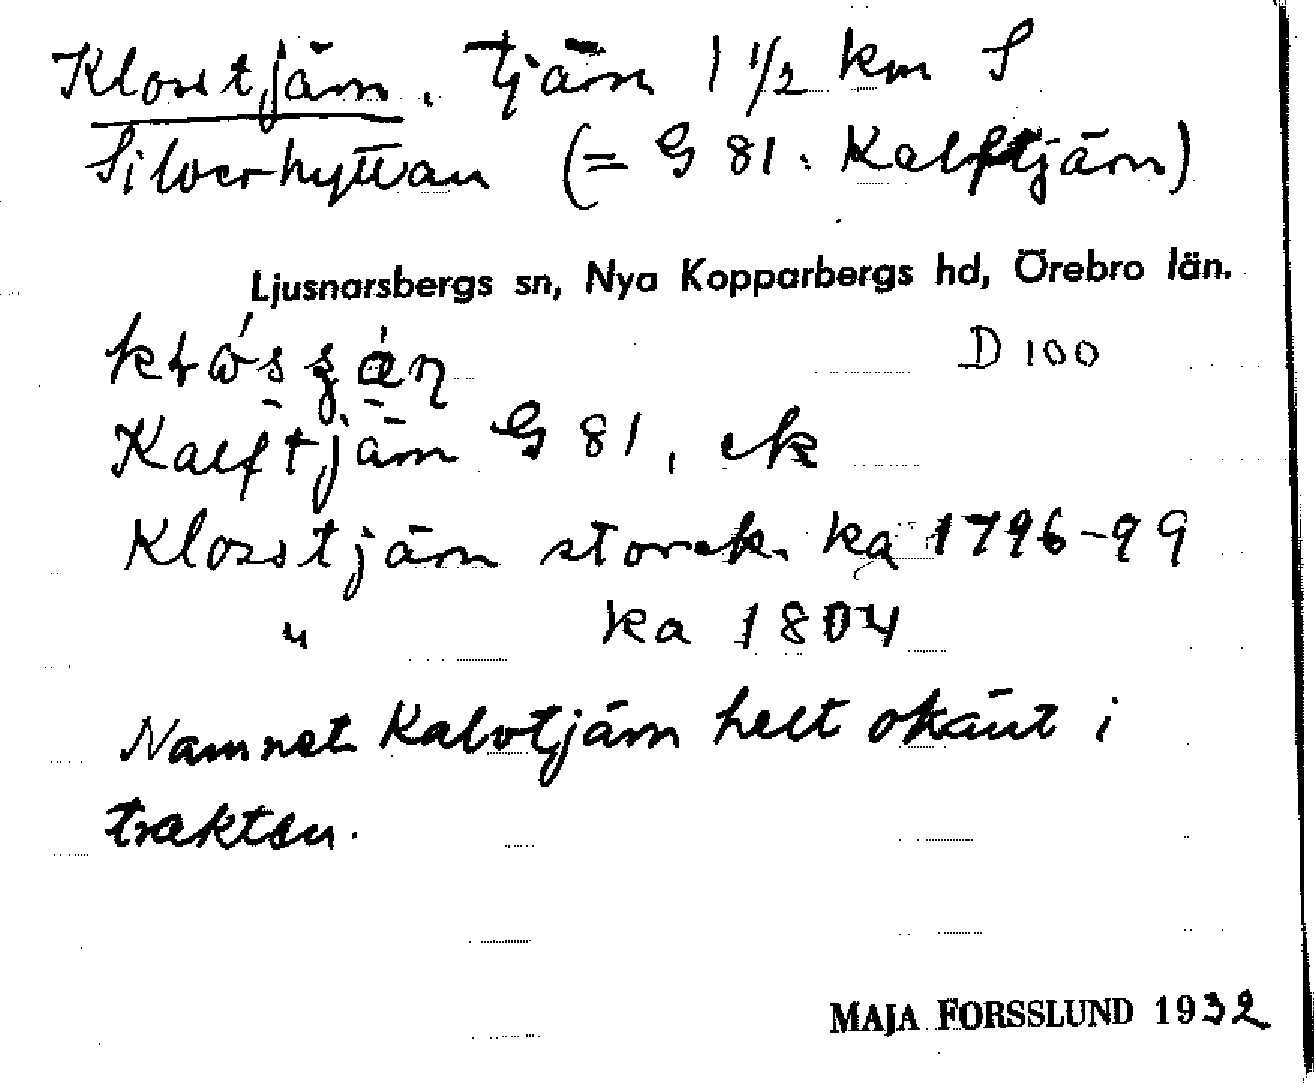 Klosstjärn, tjärn 1 1/2 km S
Silverhyttan (= G 81: Kalftjärn)
Ljusnarsbergs sn, Nya Kopparbergs hd, Örebro län.
D 100
Kalftjärn G 81, ek
Klosstjärn storsk. ka 1796-99
" ka 1804
Namnet Kalvtjärn helt okänt i
trakten.
MAJA FORSSLUND 1932